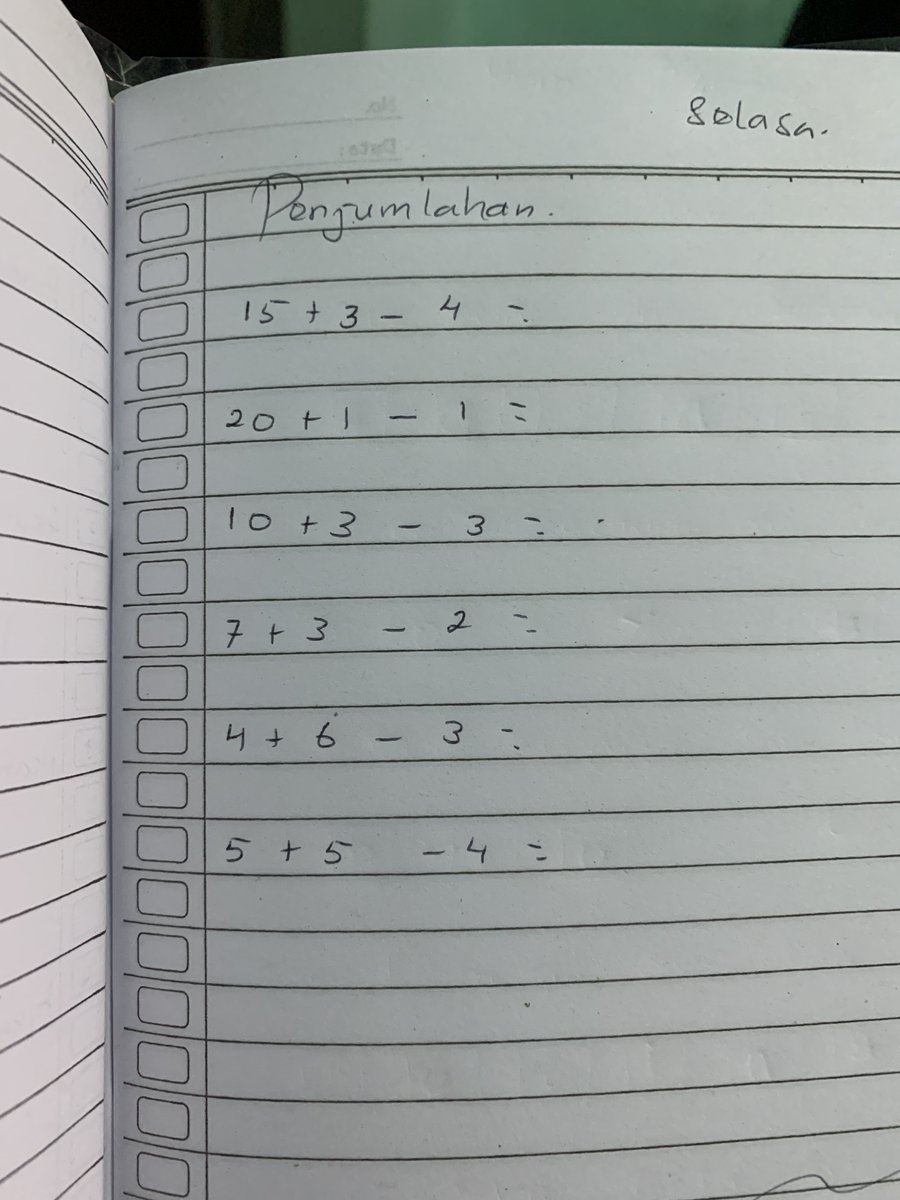 Selasa.
Penjumlahan.
15 + 3 - 4 =
20 + 1 - 1 =
10 + 3 - 3 =
7 + 3 - 2 =
4 + 6 - 3 =
5 + 5 - 4 =
No.
Date: